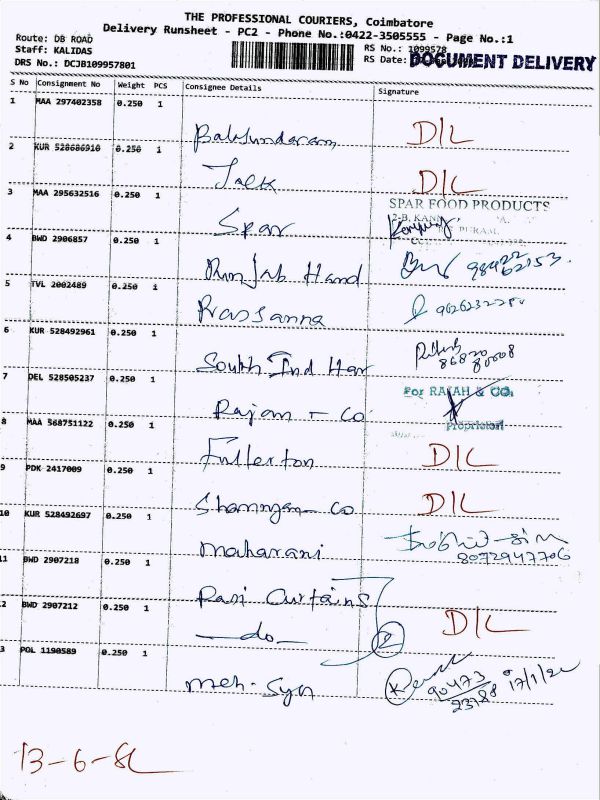 THE PROFESSIONAL COURIERS, Coimbatore
Delivery Runsheet - PC2 - Phone No.:0422-3505555 - Page No.:1
Route: DB ROAD
Staff: KALIDAS
DRS No.: DCJB109957801
RS No.: 1099578
RS Date:
DOCUMENT DELIVERY
S No Consignment No Weight PCS Consignee Details Signature
1 MAA 297402358 0.250 1
Balasundaram D/L
2 KUR 528686910 0.250 1
Jack D/L
3 MAA 295632516 0.250 1
SPAR FOOD PRODUCTS
Spar
4 BWD 2906857 0.250 1
Punjab Hand
5 TVL 2002489 0.250 1
Prassanna
6 KUR 528492961 0.250 1
South Ind Har 86820 80008
7 DEL 528505237 0.250 1
For RAJAH & CO.
Rajam + Co
Proprietor
8 MAA 568751122 0.250 1
Fullerton D/L
9 PDK 2417009 0.250 1
Shanmugam Co D/L
10 KUR 528492697 0.250 1
Maharani 8072947706
11 BWD 2907218 0.250 1
Pasi Curtains
2 BWD 2907212 0.250 1
—do— 2 D/L
3 POL 1190589 0.250 1
90473 23788
13-6-8L